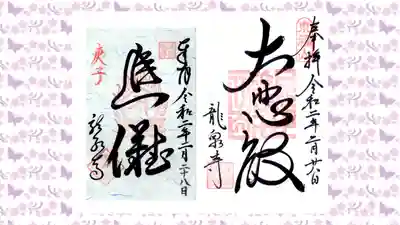 奉拝 令和二年二月廿八日
大悲殿
龍泉寺
奉拝 令和二年二月二十八日
追儺
龍泉寺
庚子